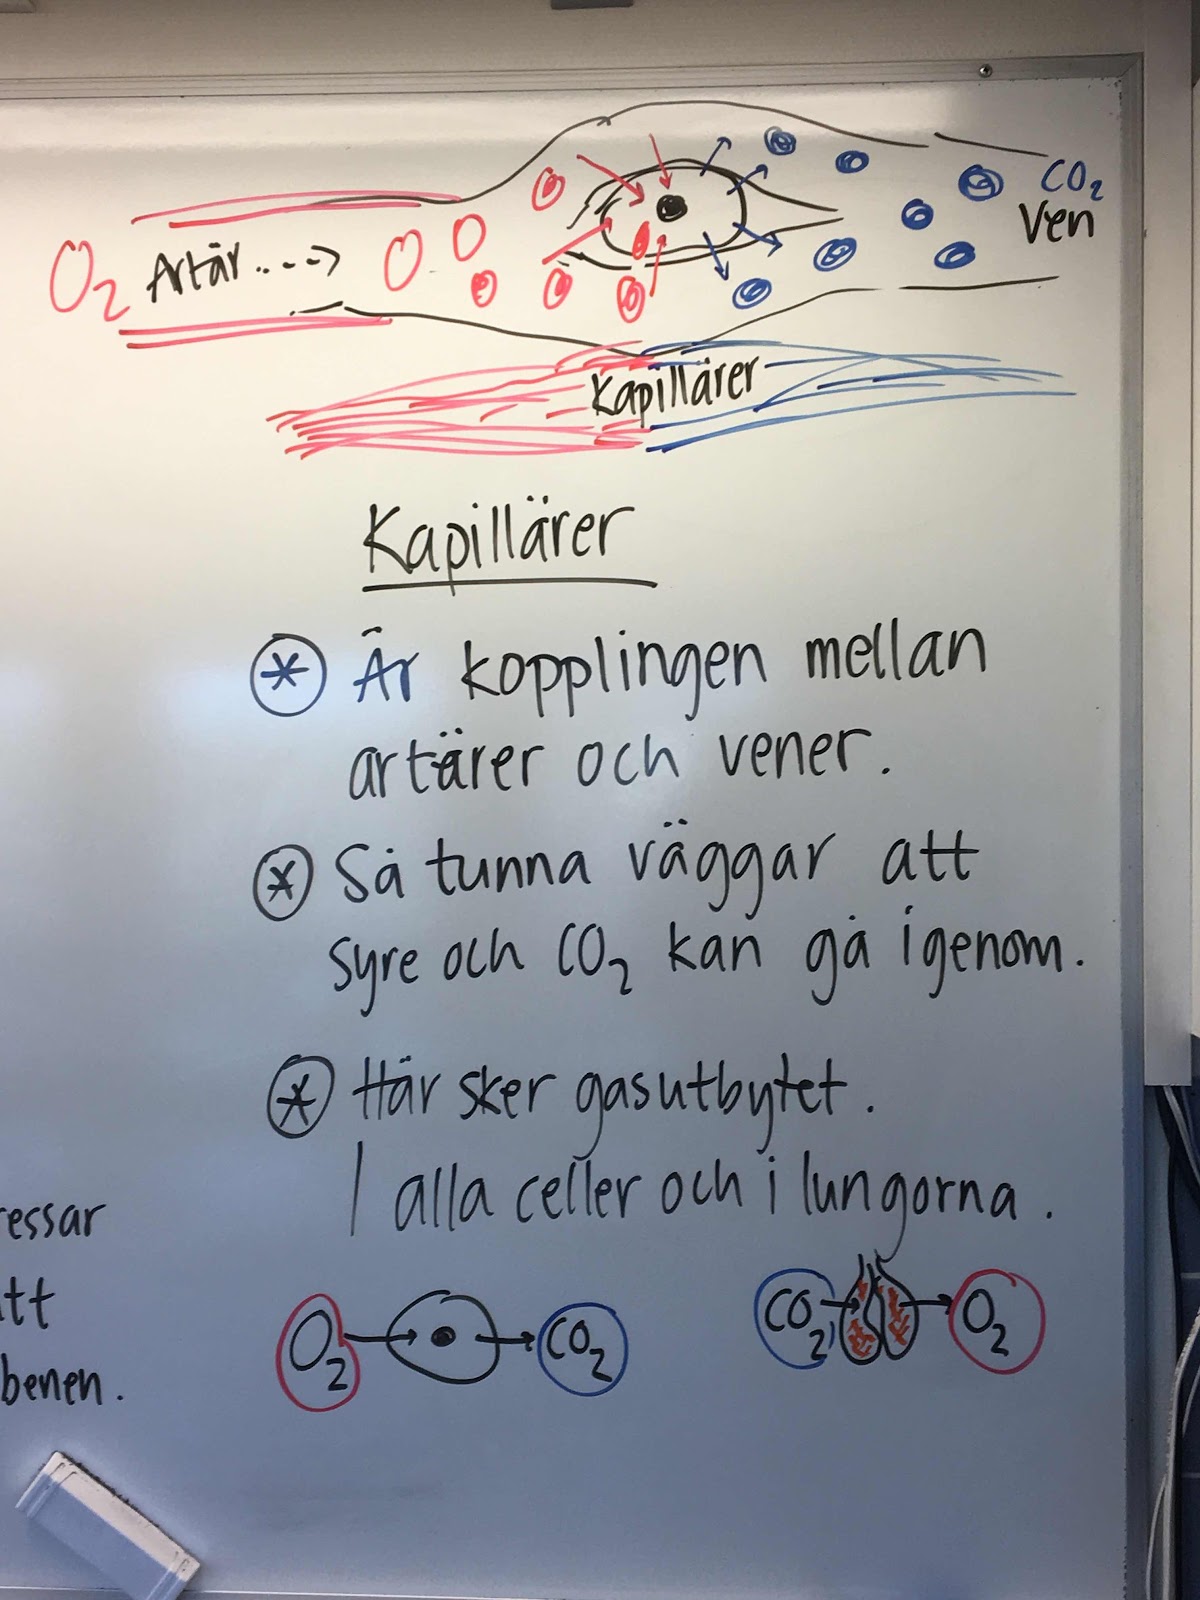 O₂ Artär...-->
CO₂
Ven
Kapillärer
Kapillärer
Är kopplingen mellan
artärer och vener.
Så tunna väggar att
syre och CO₂ kan gå igenom.
Här sker gasutbytet.
I alla celler och i lungorna.
O₂ → CO₂
CO₂ → O₂
essar
tt
benen.